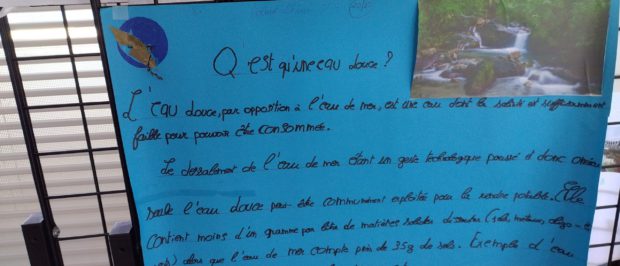 Q'est qu'une eau douce ?
L'eau douce, par opposition à l'eau de mer, est une eau dont la salinité est suffisamment
faible pour pouvoir être consommée.
Le dessalement de l'eau de mer étant un geste technologique poussé et donc onéreux
seule l'eau douce peut être communément exploitée pour la rendre potable. Elle
contient moins d'un gramme par litre de matières solides dissoutes (sels, métaux,
alors que l'eau de mer compte près de 35g de sels. Exemple d'eau